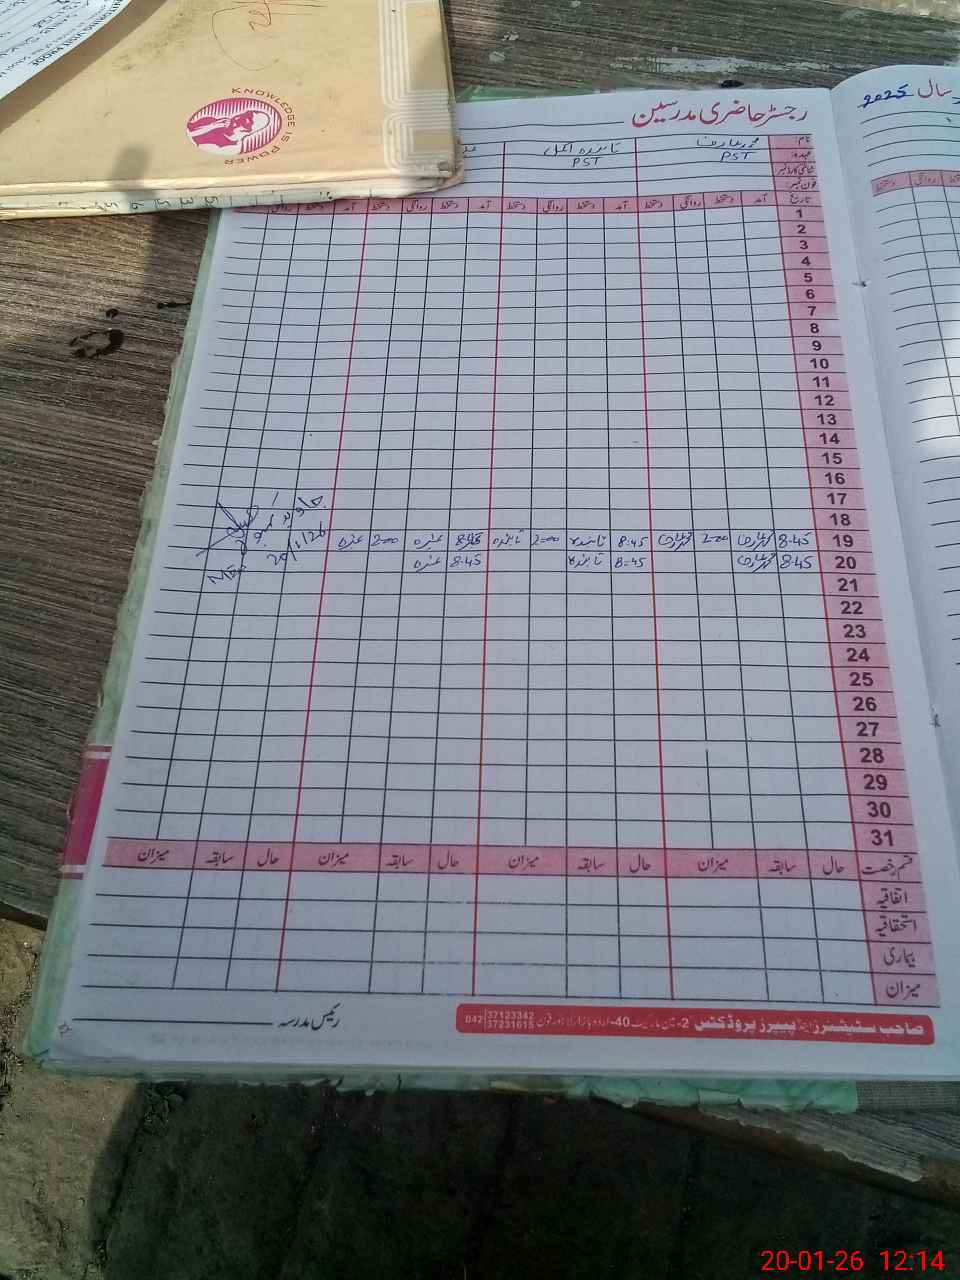 KNOWLEDGE IS POWER
سال 2025
رجسٹر حاضری مدرسین
نام:
عہدہ: PST PST
شناختی کارڈ نمبر
فون نمبر:
تاریخ آمد دستخط روانگی دستخط آمد دستخط روانگی دستخط آمد دستخط روانگی دستخط آمد دستخط روانگی
1
2
3
4
5
6
7
8
9
10
11
12
13
14
15
16
17
18
19 8.45 2=00 8.45 تابندہ 2=00 تابندہ 8.45 عنزہ 2=00 عنزہ
20 8.45 8=45 تابندہ 8.45 عنزہ
20/1/26
21
22
23
24
25
26
27
28
29
30
31
قسم رخصت حال سابقہ میزان حال سابقہ میزان حال سابقہ میزان حال سابقہ میزان
اتفاقیہ
استحقاقیہ
بیماری
میزان
رئیس مدرسہ
صاحب سٹیشنرز اینڈ پیپرز پروڈکٹس 2-مین مارکیٹ 40-اردو بازار لاہور فون 042 37123342 37231615
20-01-26 12:14